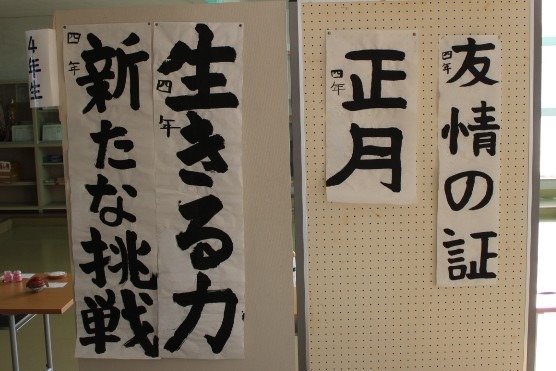 友情の証
四年
正月
四年
生きる力
四年
新たな挑戦
四年
4年生